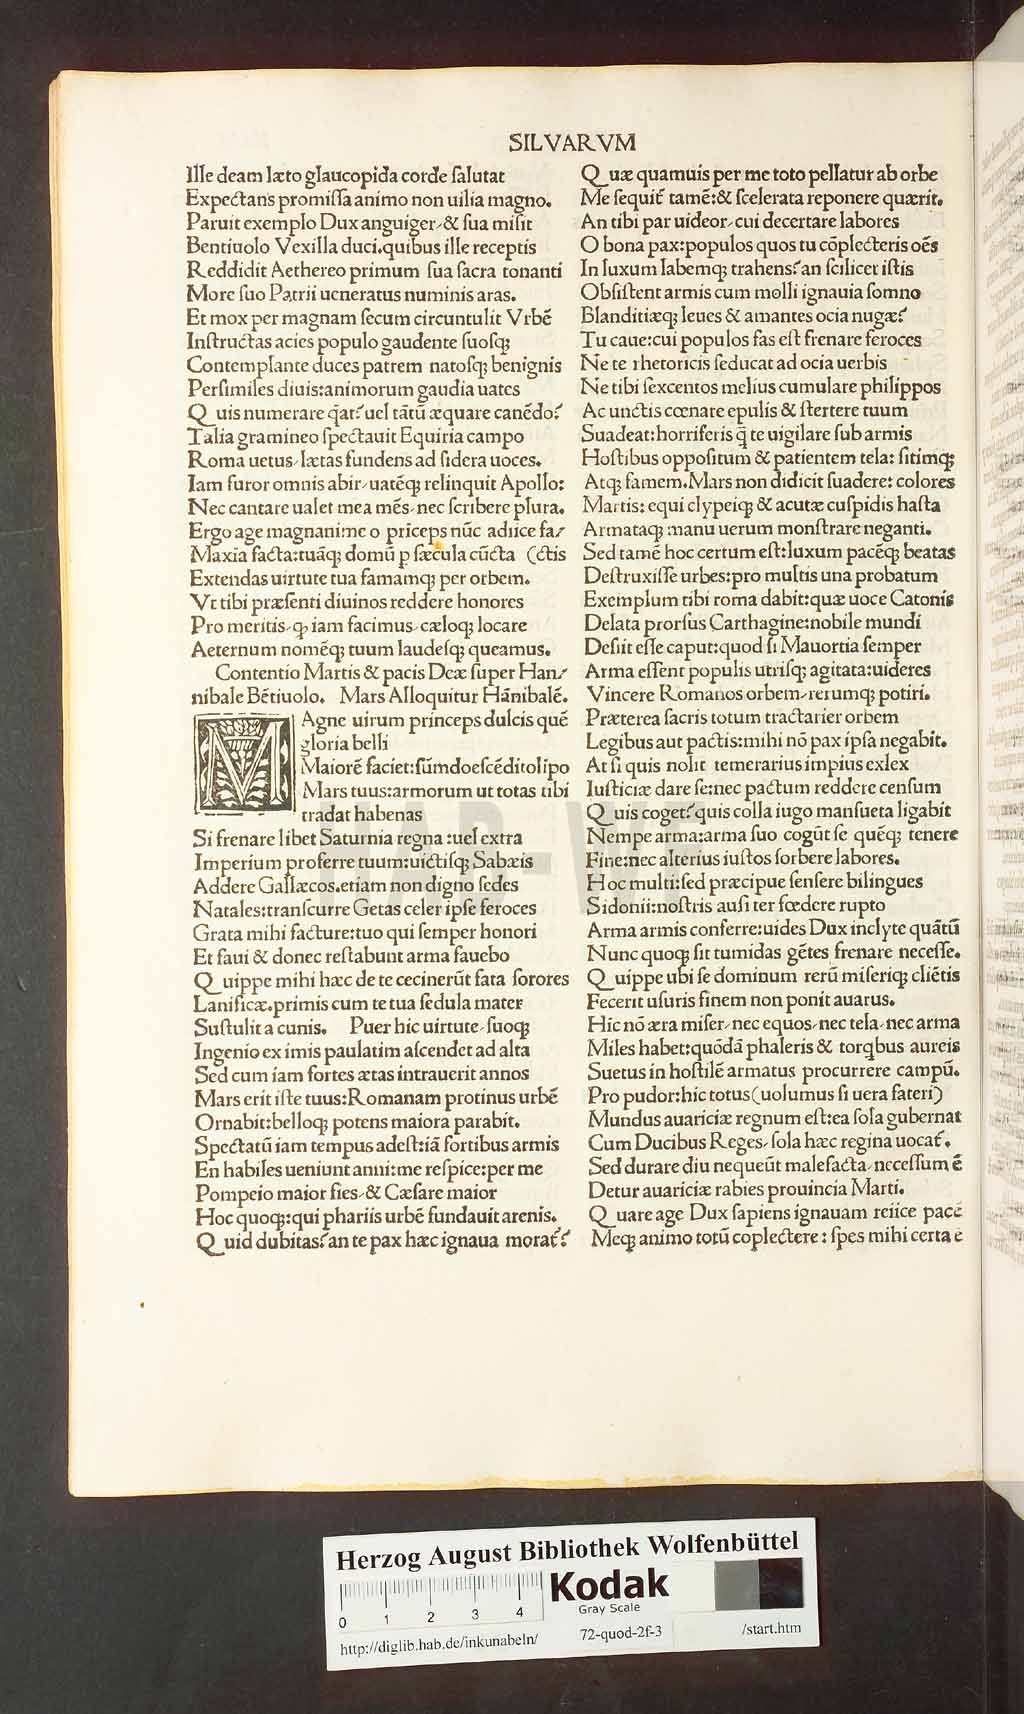 SILVARVM
Ille deam læto glaucopida corde ſalutat
Expectans promiſſa animo non uilia magno.
Paruit exemplo Dux anguiger⸗& ſua miſit
Bentiuolo Vexilla duci.quibus ille receptis
Reddidit Aethereo primum ſua ſacra tonanti
More ſuo Patrii ueneratus numinis aras.
Et mox per magnam ſecum circuntulit Vrbē
Inſtructas acies populo gaudente ſuoſq;
Contemplante duces patrem natoſq; benignis
Perſimiles diuis:animorum gaudia uates
Quis numerare q̄at?uel tātū æquare canēdo?
Talia gramineo ſpectauit Equiria campo
Roma uetus⸗lætas fundens ad ſidera uoces.
Iam furor omnis abir⸗uatēq; relinquit Apollo:
Nec cantare ualet mea mēs⸗nec ſcribere plura.
Ergo age magnanime o prīceps nūc adiice fa⸗
Maxia facta:tuāq; domū p ſæcula cūcta (ctis
Extendas uirtute tua famamq; per orbem.
Vt tibi præſenti diuinos reddere honores
Pro meritis⸗q iam facimus⸗cæloq; locare
Aeternum nomēq; tuum laudeſq; queamus.
Contentio Martis & pacis Deæ ſuper Han⸗
nibale Bētiuolo. Mars Alloquitur Hānibalē.
MAgne uirum princeps dulcis quē
gloria belli
Maiorē faciet:ſūmdoeſcēditolīpo
Mars tuus:armorum ut totas tibi
tradat habenas
Si frenare libet Saturnia regna:uel extra
Imperium proferre tuum:uictiſq; Sabæis
Addere Gallæcos.etiam non digno ſedes
Natales:tranſcurre Getas celer ipſe feroces
Grata mihi facture:tuo qui ſemper honori
Et faui & donec reſtabunt arma fauebo
Quippe mihi hæc de te cecinerūt fata ſorores
Lanificæ.primis cum te tua ſedula mater
Suſtulit a cunis. Puer hic uirtute⸗ſuoq;
Ingenio ex imis paulatim aſcendet ad alta
Sed cum iam fortes ætas intrauerit annos
Mars erit iſte tuus:Romanam protinus urbē
Ornabit:belloq; potens maiora parabit.
Spectatū iam tempus adeſt:iā fortibus armis
En habiles ueniunt anni:me reſpice:per me
Pompeio maior fies⸗& Cæſare maior
Hoc quoq;:qui phariis urbē fundauit arenis.
Quid dubitas?an te pax hæc ignaua morat̄?
Quæ quamuis per me toto pellatur ab orbe
Me ſequit̄ tamē:& ſcelerata reponere quærit.
An tibi par uideor⸗cui decertare labores
O bona pax:populos quos tu cōplecteris oēs
In luxum labemq; trahens?an ſcilicet iſtis
Obſiſtent armis cum molli ignauia ſomno
Blanditiæq; leues & amantes ocia nugæ?
Tu caue:cui populos fas eſt frenare feroces
Ne te rhetoricis ſeducat ad ocia uerbis
Ne tibi ſexcentos melius cumulare philippos
Ac unctis cœnare epulis & ſtertere tuum
Suadeat:horriferis q̄ te uigilare ſub armis
Hoſtibus oppoſitum & patientem tela: ſitimq;
Atq; famem.Mars non didicit ſuadere: colores
Martis: equi clypeiq; & acutæ cuſpidis haſta
Armataq; manu uerum monſtrare neganti.
Sed tamē hoc certum eſt:luxum pacēq; beatas
Deſtruxiſſe urbes:pro multis una probatum
Exemplum tibi roma dabit:quæ uoce Catonis
Delata prorſus Carthagine:nobile mundi
Deſiit eſſe caput:quod ſi Mauortia ſemper
Arma eſſent populis utriſq; agitata:uideres
Vincere Romanos orbem⸗rerumq; potiri.
Præterea ſacris totum tractarier orbem
Legibus aut pactis:mihi nō pax ipſa negabit.
At ſi quis nolit temerarius impius exlex
Iuſticiæ dare ſe:nec pactum reddere cenſum
Quis coget?quis colla iugo manſueta ligabit
Nempe arma:arma ſuo cogūt ſe quēq; tenere
Fine:nec alterius iuſtos ſorbere labores.
Hoc multi:ſed præcipue ſenſere bilingues
Sidonii:noſtris auſi ter fœdere rupto
Arma armis conferre:uides Dux inclyte quātū
Nunc quoq; ſit tumidas gētes frenare neceſſe.
Quippe ubi ſe dominum rerū miſeriq; cliētis
Fecerit uſuris finem non ponit auarus.
Hic nō æra miſer⸗nec equos⸗nec tela⸗nec arma
Miles habet:quōdā phaleris & torqbus aureis
Suetus in hoſtilē armatus procurrere campū.
Pro pudor:hic totus (uolumus ſi uera fateri)
Mundus auariciæ regnum eſt:ea ſola gubernat
Cum Ducibus Reges⸗ſola hæc regina uocat̄.
Sed durare diu nequeūt malefacta⸗neceſſum ē
Detur auariciæ rabies prouincia Marti.
Quare age Dux ſapiens ignauam reiice pacē
Meq; animo totū coplectere: ſpes mihi certa ē
HAB-WF
Herzog August Bibliothek Wolfenbüttel
0 1 2 3 4
Kodak
Gray Scale
http://diglib.hab.de/inkunabeln/ 72-quod-2f-3 /start.htm